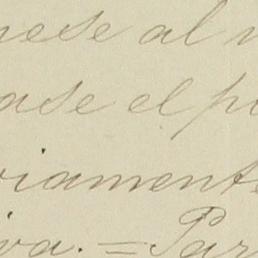 nese al
ase el p
viamente
iva. = Par